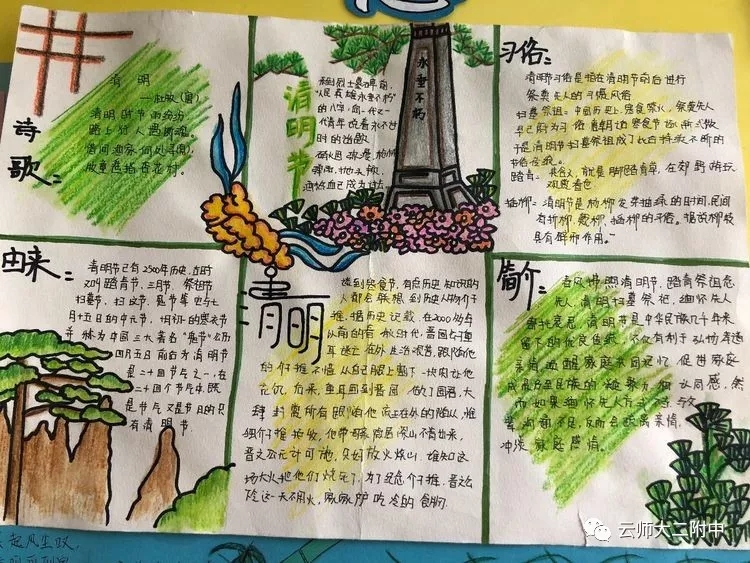 诗歌：
清明
—杜牧（唐）
清明时节雨纷纷
路上行人欲断魂
借问酒家何处寻
牧童遥指杏花村.
清明节
来到烈士墓碑前，
"人民英雄永垂不朽"
的八字，向一代又一
代青年说着永不过
时的话题
永垂不朽
习俗：
清明节习俗是指在清明节前后进行
祭奠先人的习惯风俗
扫墓祭祖：中国历史上，寒食禁火，祭奠先人
于是清明节扫墓祭祖成了长白持续不断的
踏青：其含义，就是脚踏青草，在郊野游玩
观赏春色
插柳：清明节是杨柳发芽抽绿的时间，民间
有折柳、戴柳、插柳的习俗。据说柳枝
具有辟邪作用。
由来：
清明节已有2500年历史，古时
又叫踏青节、三月节、祭祖节
扫墓节、扫坟节、鬼节等 也与七
月十五日的中元节，十月初一的寒衣节
并称为中国三大著名"鬼节"公历
四月五日前后为清明节
是二十四节气之一，在
二十四个节气中，既
是节气又是节日的只
有清明节
清明
谈到寒食节，有点历史知识的
人都会联想到历史人物介子
推，据历史记载，在2000多年
以前的春秋时代，晋国公子重
耳逃亡在外，生活艰苦，跟随他
的介子推不惜从自己腿上割下一块肉让他
充饥，后来，重耳回到晋国，做了国君，大
肆封赏所有跟随他流亡在外的随从，惟
独介子推拒收，他带母亲隐居深山不肯出来，
晋文公无计可施，只好放火烧山，谁知这
场大火把他们烧死了，为了纪念介子推，晋文公
令这一天不用火，家家户户吃冷的食物.
简介：
春风拂照清明节，踏青祭祖念
先人，清明扫墓祭祀，缅怀先人
寄托哀思，清明节是中华民族几千年来
留下的优良传统，不仅有利于弘扬孝道
亲情，唤醒家族共同记忆，促进家族
成员乃至民族的凝聚力和认同感，然
冲淡 家庭感情.
云师大二附中